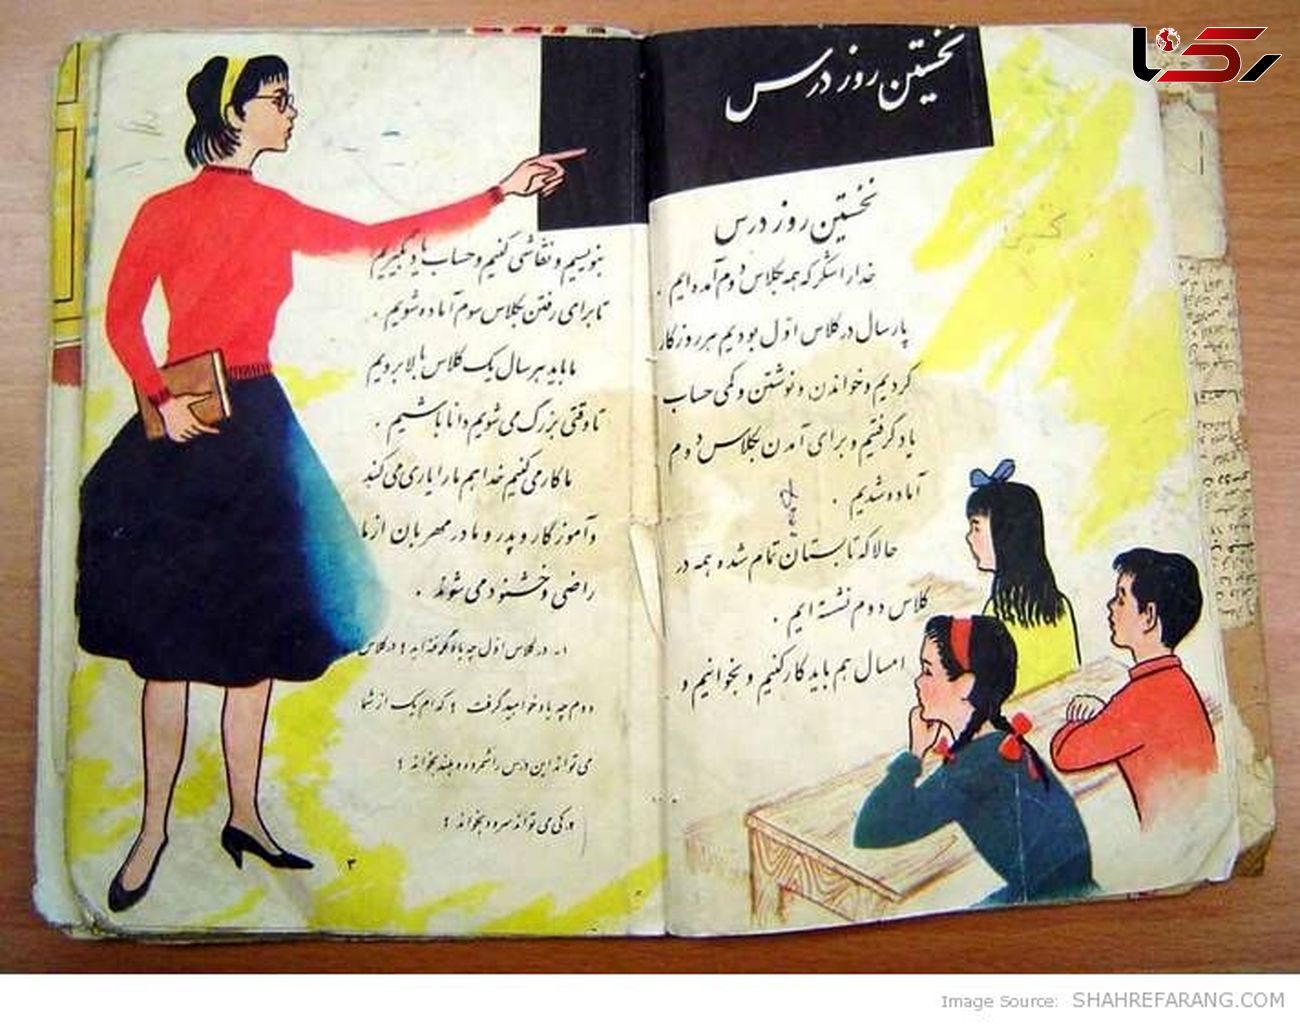 رکنا
نخستین روز درس
نخستین روز درس
خدا را شکر که همه بکلاس دوم آمده ایم .
پارسال در کلاس اوّل بودیم هر روز کار
کردیم و خواندن و نوشتن و کمی حساب
یاد گرفتیم و برای آمدن بکلاس دوم
آماده شدیم .
حالا که تابستان تمام شده و همه در
کلاس دوم نشسته ایم .
امسال هم باید کار کنیم و بخوانیم و
بنویسیم و نقاشی کنیم و حساب یاد بگیریم
تا برای رفتن بکلاس سوم آماده شویم .
ما باید هر سال یک کلاس بالا برویم
تا وقتی بزرگ می شویم دانا باشیم .
ما کار می کنیم خدا هم ما را یاری می کند
و آموزگار و پدر و مادر مهربان از ما
راضی و خشنود می شوند .
۱- در کلاس اوّل چه یاد گرفته اید ؟ در کلاس
دوم چه یاد خواهید گرفت ؟ کدام یک از شما
می تواند این درس را شمرده و بلند بخواند ؟
۲. کی می تواند سرود بخواند ؟
۳
Image Source: SHAHREFARANG.COM